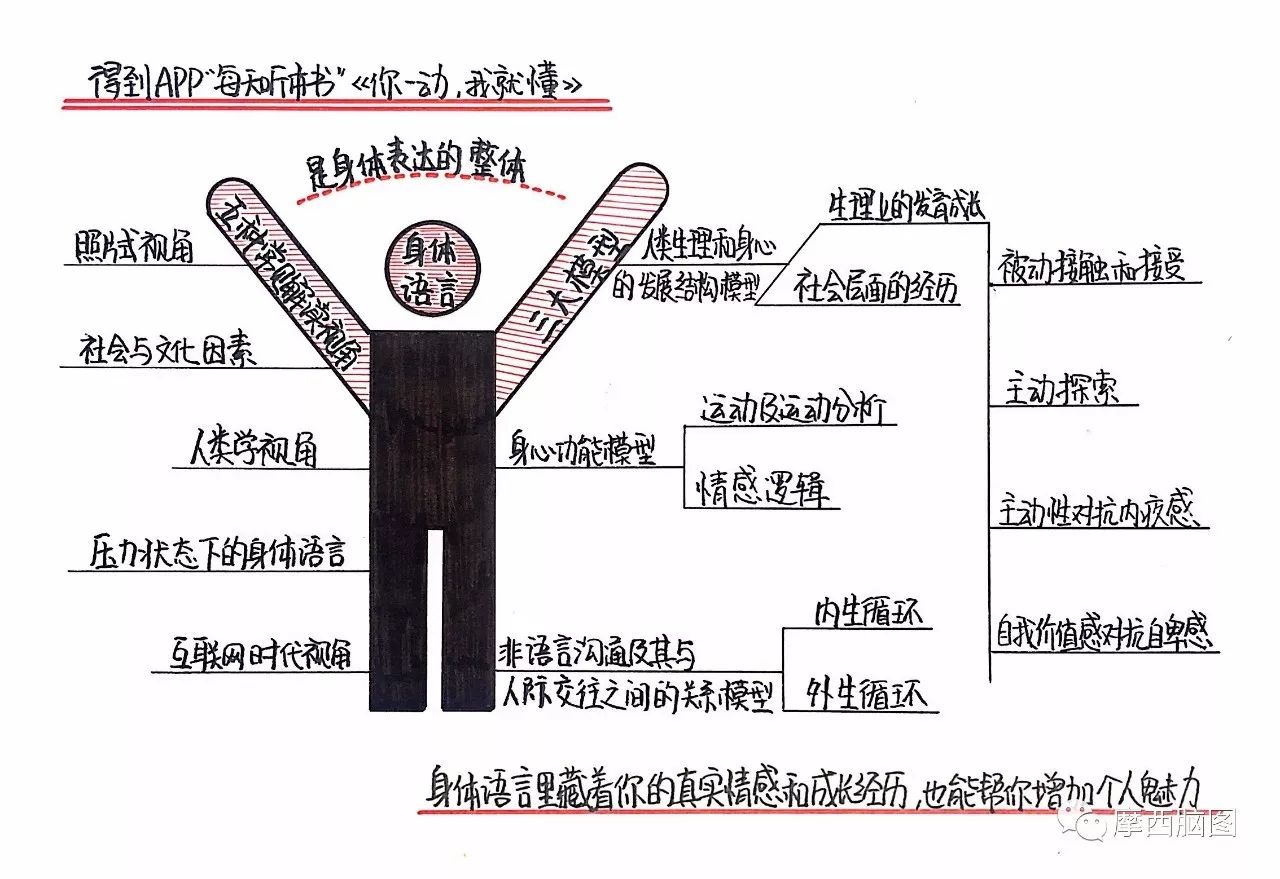 得到APP“每天听本书”《你一动,我就懂》
是身体表达的整体
身体
语言
五种常见解读视角
照片式视角
社会与文化因素
人类学视角
压力状态下的身体语言
互联网时代视角
三大模型
人类生理和身心
的发展结构模型
生理上的发育成长
社会层面的经历
被动接触和接受
主动探索
主动性对抗内疚感
自我价值感对抗自卑感
身心功能模型
运动及运动分析
情感逻辑
非语言沟通及其与
人际交往之间的关系模型
内生循环
外生循环
身体语言里藏着你的真实情感和成长经历,也能帮你增加个人魅力
摩西脑图